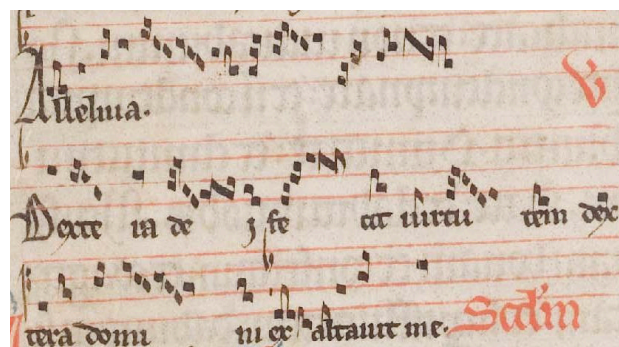 Alleluia. V
Dextera dei fecit uirtutem dex
tera domini exaltauit me.